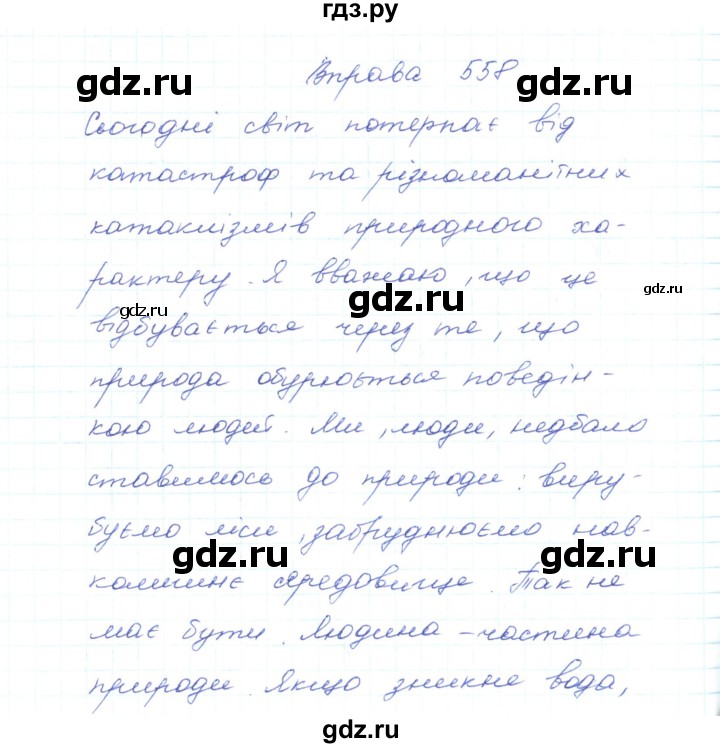 гдз.ру
Вправа 558
gdz.ru gdz.ru
Сьогодні світ потерпає від
катастроф та різноманітних
катаклізмів природного ха-
рактеру. Я вважаю, що це
gdz.ru gdz.ru gdz.ru
відбувається через те, що
природа обурюється поведін-
кою людей. Ми, люди, недбало
gdz.ru gdz.ru
ставимось до природи: виру-
буємо ліси, забруднюємо нав-
gdz.ru gdz.ru
колишнє середовище. Так не
має бути. Людина - частина
природи. Якщо зникне вода,
gdz.ru